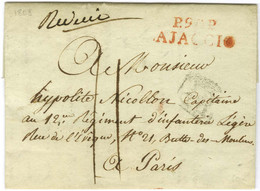 1808
P.90.P
AJACCIO
A Monsieur
hypolite Nicollon Capitaine
au 12me Régiment d'infanterie Légère
Rue de l'Evêque, No 21, Butte-des-Moulins
A Paris